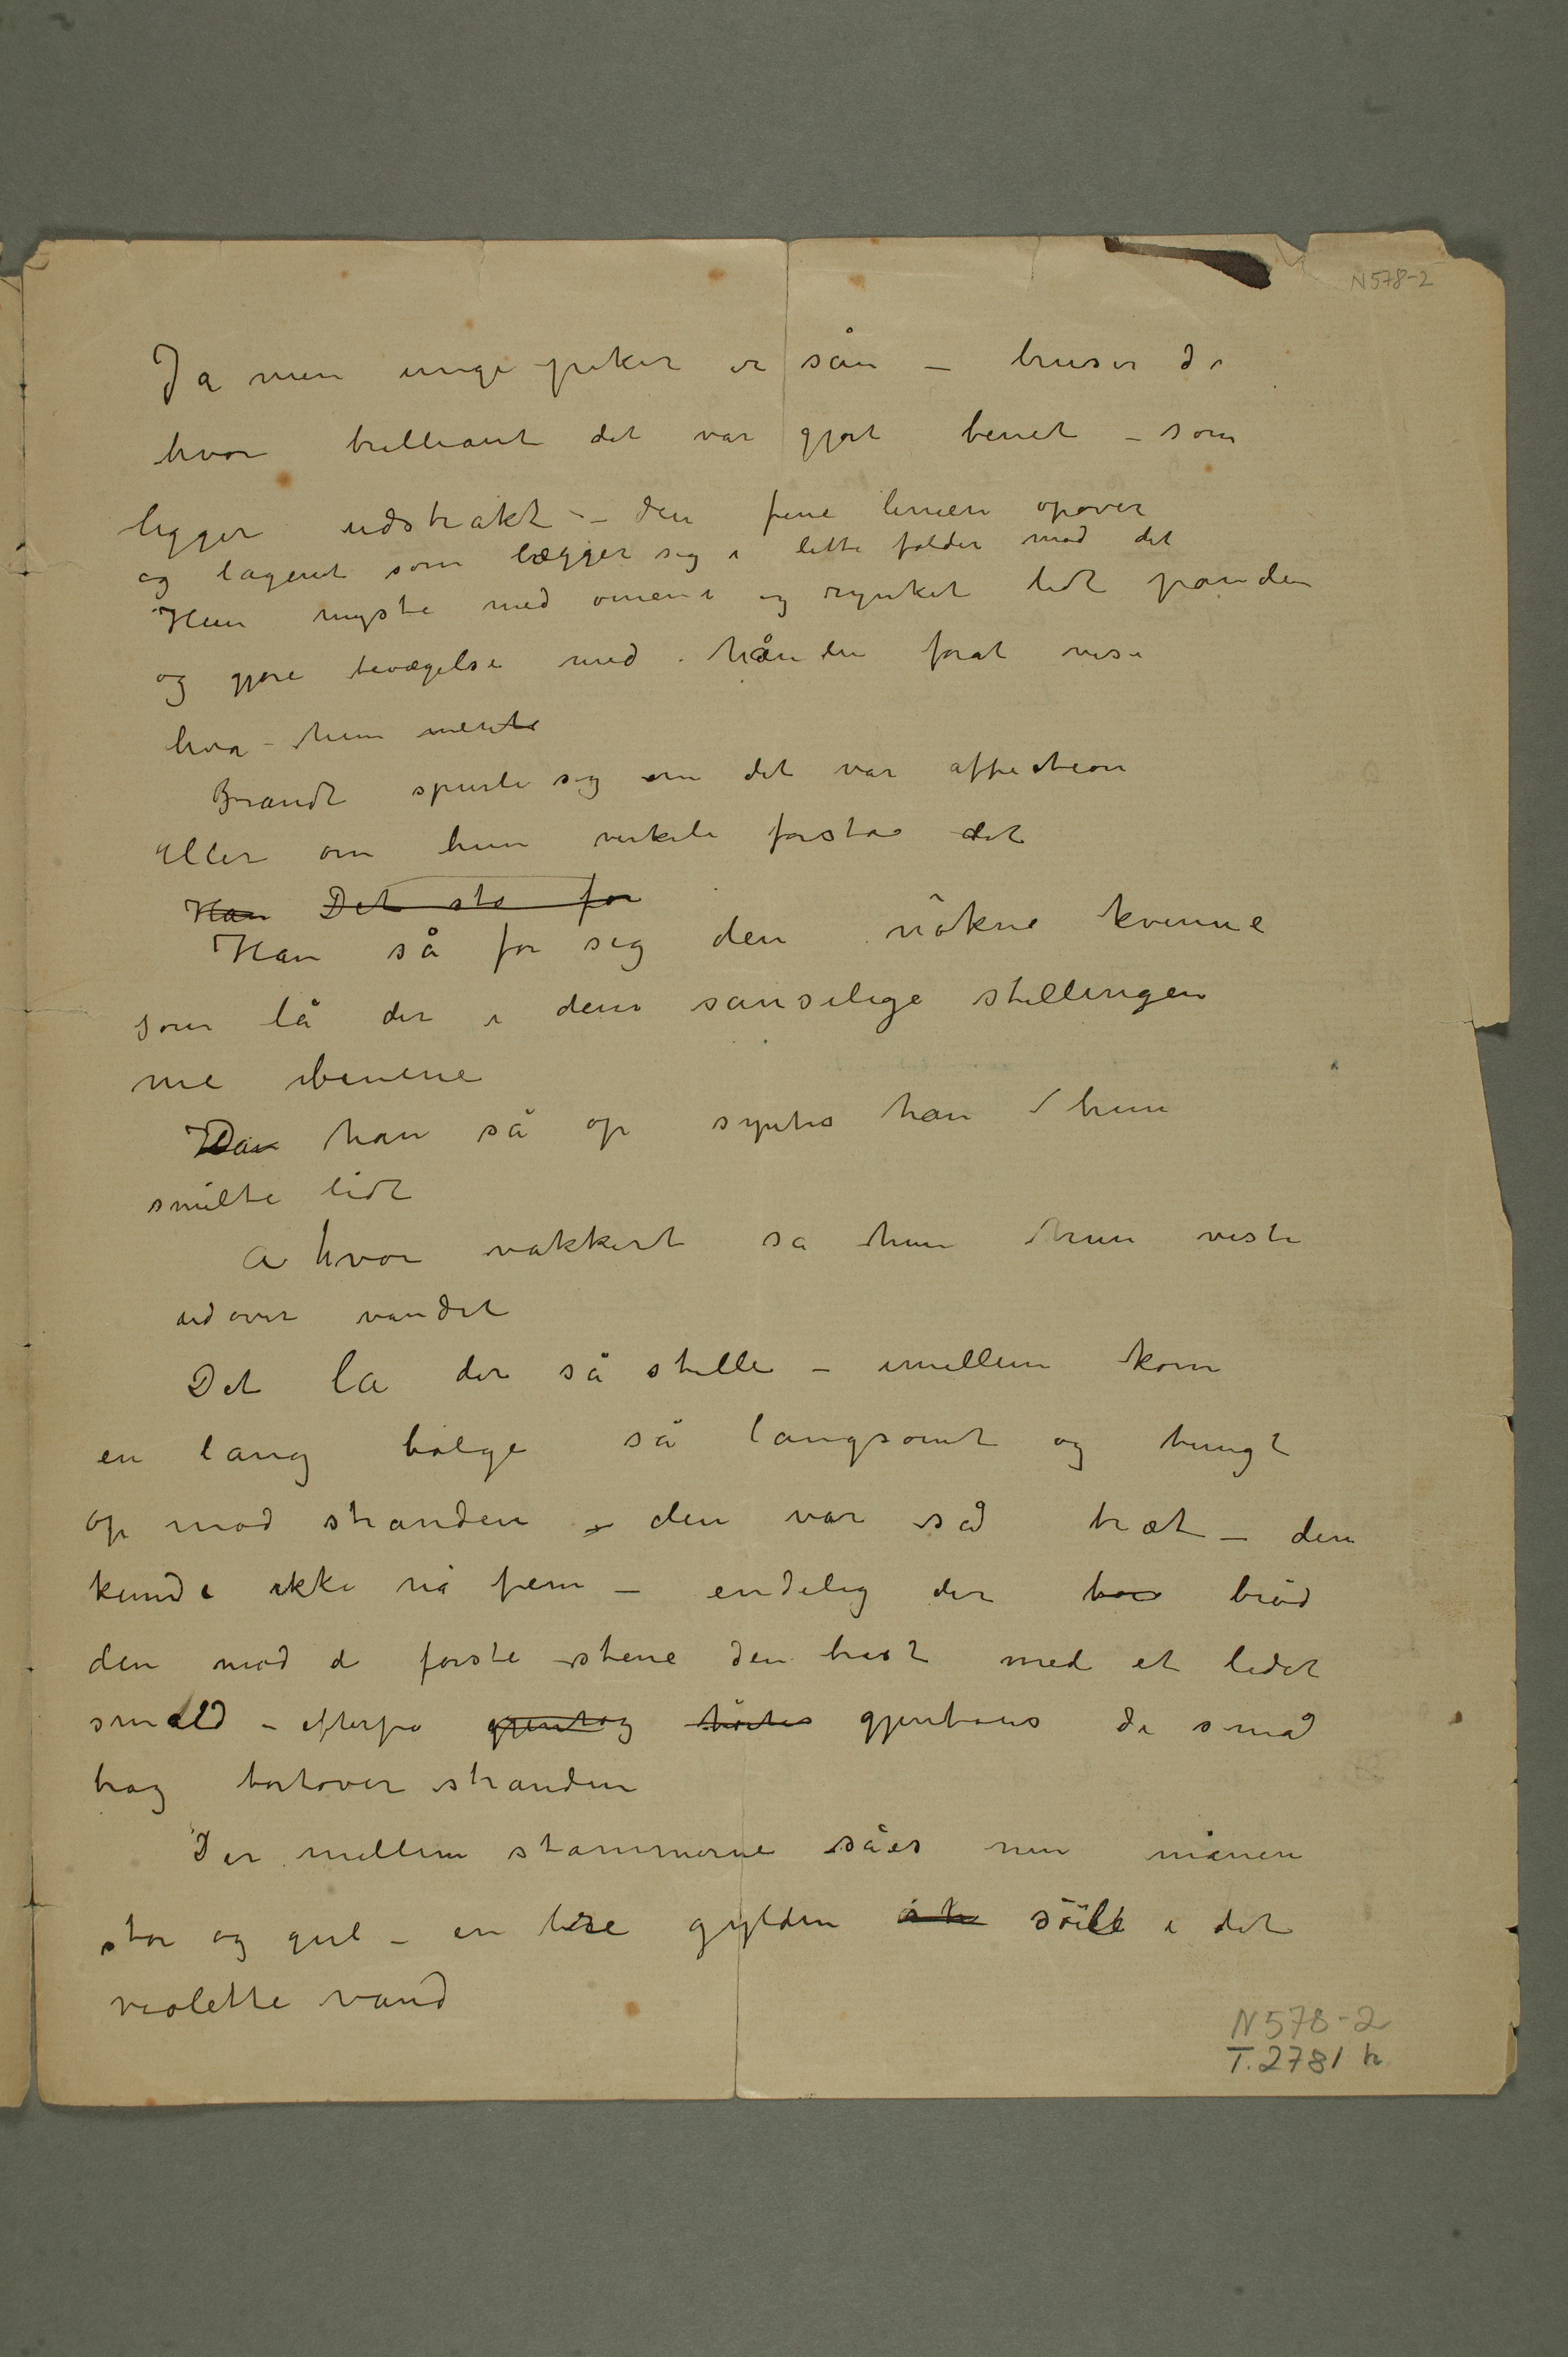 N578-2
Ja men unge piker er sån – huser De
hvor brilliant det var gjort benet – som
ligger udstrakt – den fine linien opover
og lagenet som lægger sig i lette folder mod det
Hun myste med øinene og rynket lidt panden
og gjøre bevægelse med hånden forat vise
hva hun mente
Brandt spurte sig om det var affection
eller om hun virkeli forsto det
Han Det sto for
Han så for sig den nökne kvinne
som lå der i den sanselige stillingen
me benene
Da han så op syntes han hun
smilte lidt
A hvor vakkert sa hun hun viste
udover vandet
Det la der så stille – imellem kom
en lang bølge så langsomt og tungt
op mod stranden – den var så træt – den
kunde ikke nå frem – endelig der brød
den mod de første stene den brast med et lidet
smæld – efterpå gjentog hörtes gjentoes de små
brag bortover stranden
Der mellem stammerne såes nu månen
stor og gul – en bre gylden söile i det
violette vand
N578-2
T.2781 h